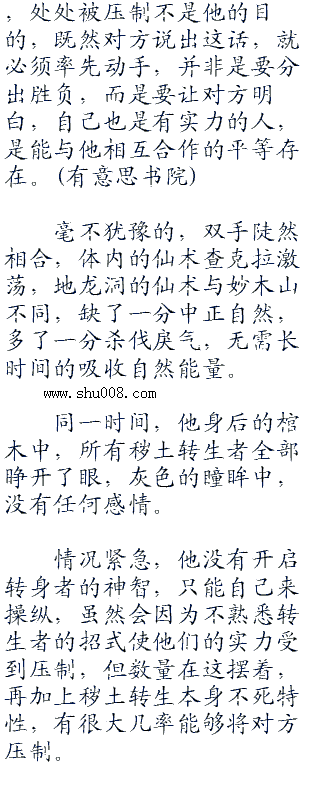 ，处处被压制不是他的目
的，既然对方说出这话，就
必须率先动手，并非是要分
出胜负，而是要让对方明
白，自己也是有实力的人，
是能与他相互合作的平等存
在。(有意思书院)
毫不犹豫的，双手陡然
相合，体内的仙术查克拉激
荡，地龙洞的仙术与妙木山
不同，缺了一分中正自然，
多了一分杀伐戾气，无需长
时间的吸收自然能量。
www.shu008.com
同一时间，他身后的棺
木中，所有秽土转生者全部
睁开了眼，灰色的瞳眸中，
没有任何感情。
情况紧急，他没有开启
转身者的神智，只能自己来
操纵，虽然会因为不熟悉转
生者的招式使他们的实力受
到压制，但数量在这摆着，
再加上秽土转生本身不死特
性，有很大几率能够将对方
压制。